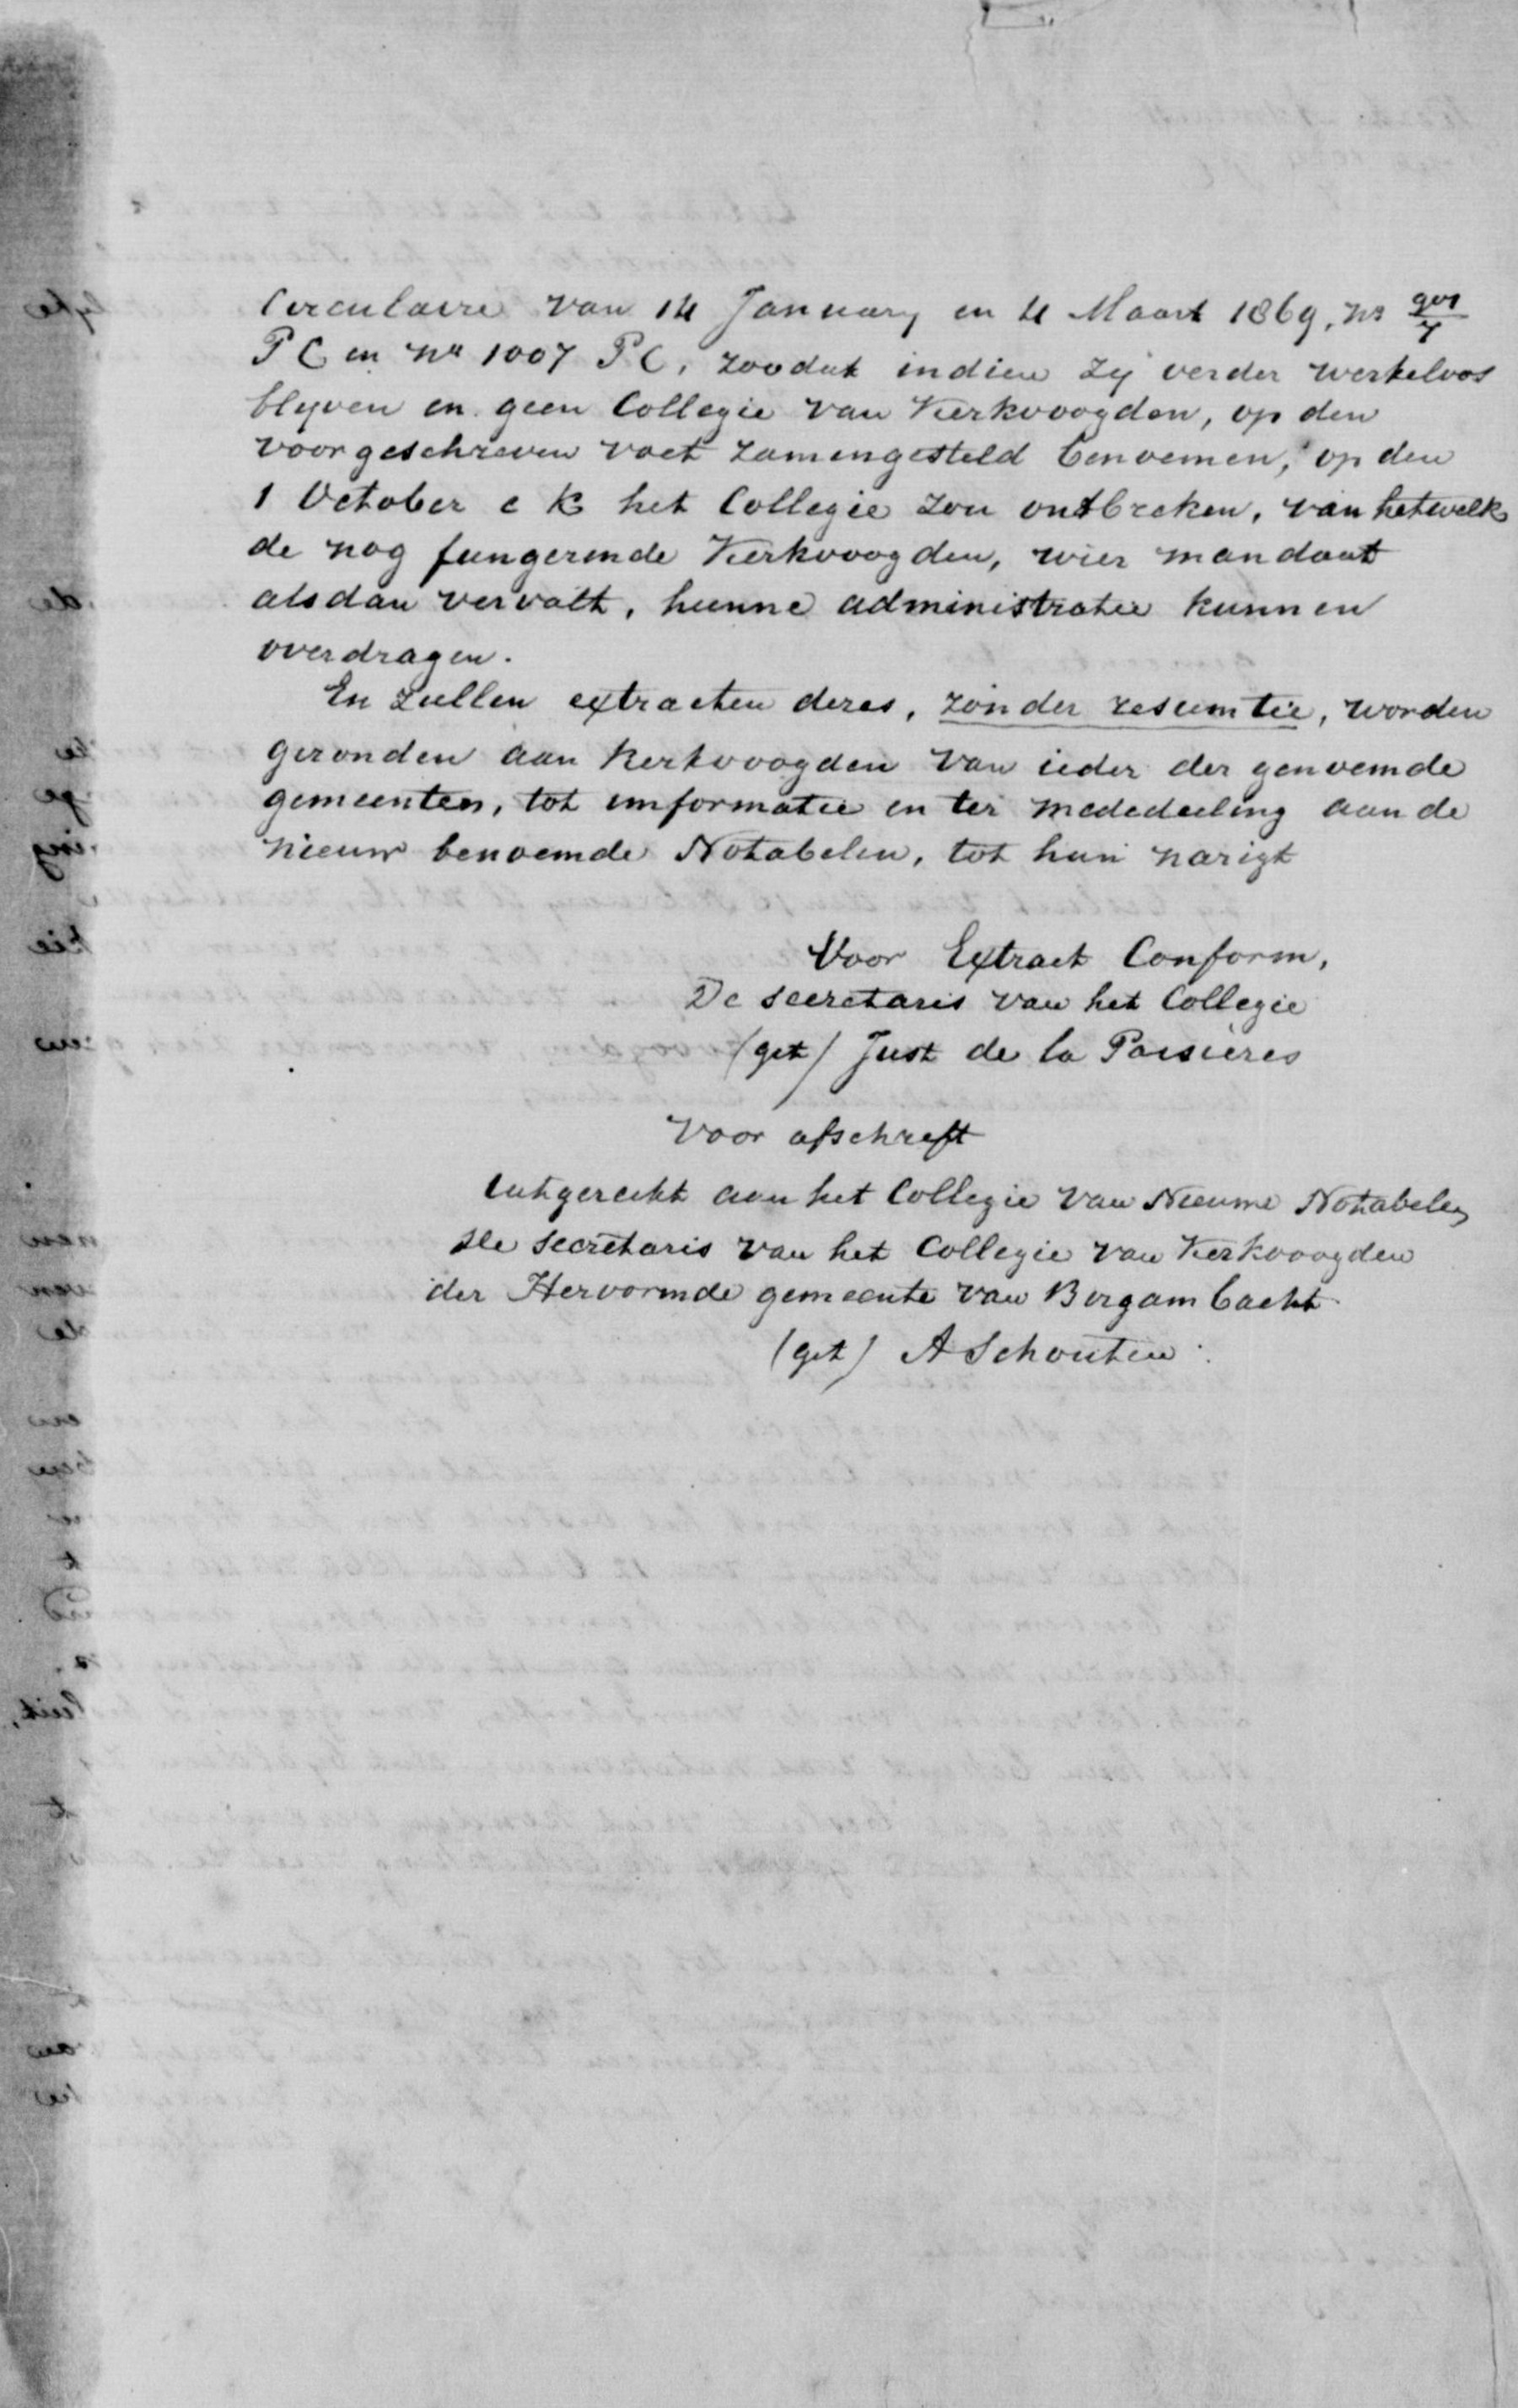 Circulaire van 14 January en 4 Maart 1869, no 901/7
P C en no 1007 P C, zoodat indien zy verder werkeloos
blyven en geen Collegie van Kerkvoogden, op den
voorgeschreven voet zamengesteld benoemen, op den
1 October e k het Collegie zou ontbreken, van hetwelk
de nog fungerende Kerkvoogden, wier mandaat
alsdan vervalt, hunne administratie kunnen
overdragen.
En zullen extracten dezes, zonder resumtie, worden
gezonden aan kerkvoogden van ieder der genoemde
gemeenten, tot imformatie en ter mededeeling aan de
nieuw benoemde Notabelen, tot hun narigt
Voor Extract Conform,
De secretaris van het Collegie
(get) Just de la Paisières
Voor afschrift
Uitgereikt aan het Collegie van Nieuwe Notabelen
De secretaris van het Collegie van Kerkvoogden
der Hervormde gemeente van Bergambacht
(get) A Schouten